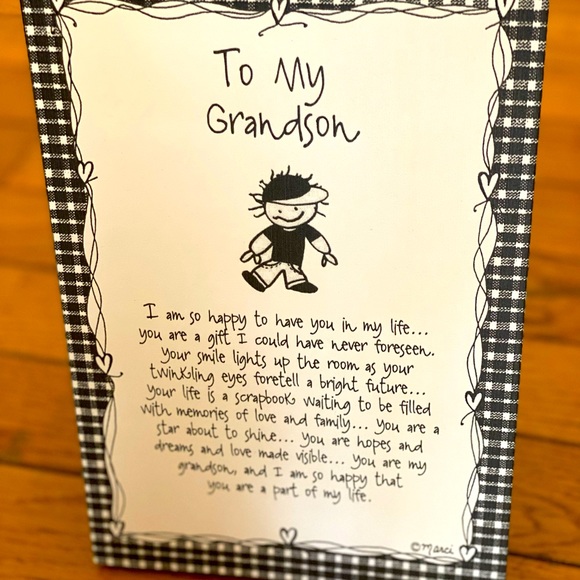 To My
Grandson
I am so happy to have you in my life...
you are a gift I could have never foreseen.
Your smile lights up the room as your
twinkling eyes foretell a bright future...
Your life is a scrapbook waiting to be filled
with memories of love and family... You are a
star about to shine... You are hopes and
dreams and love made visible... You are my
grandson, and I am so happy that
you are a part of my life.
©Marci